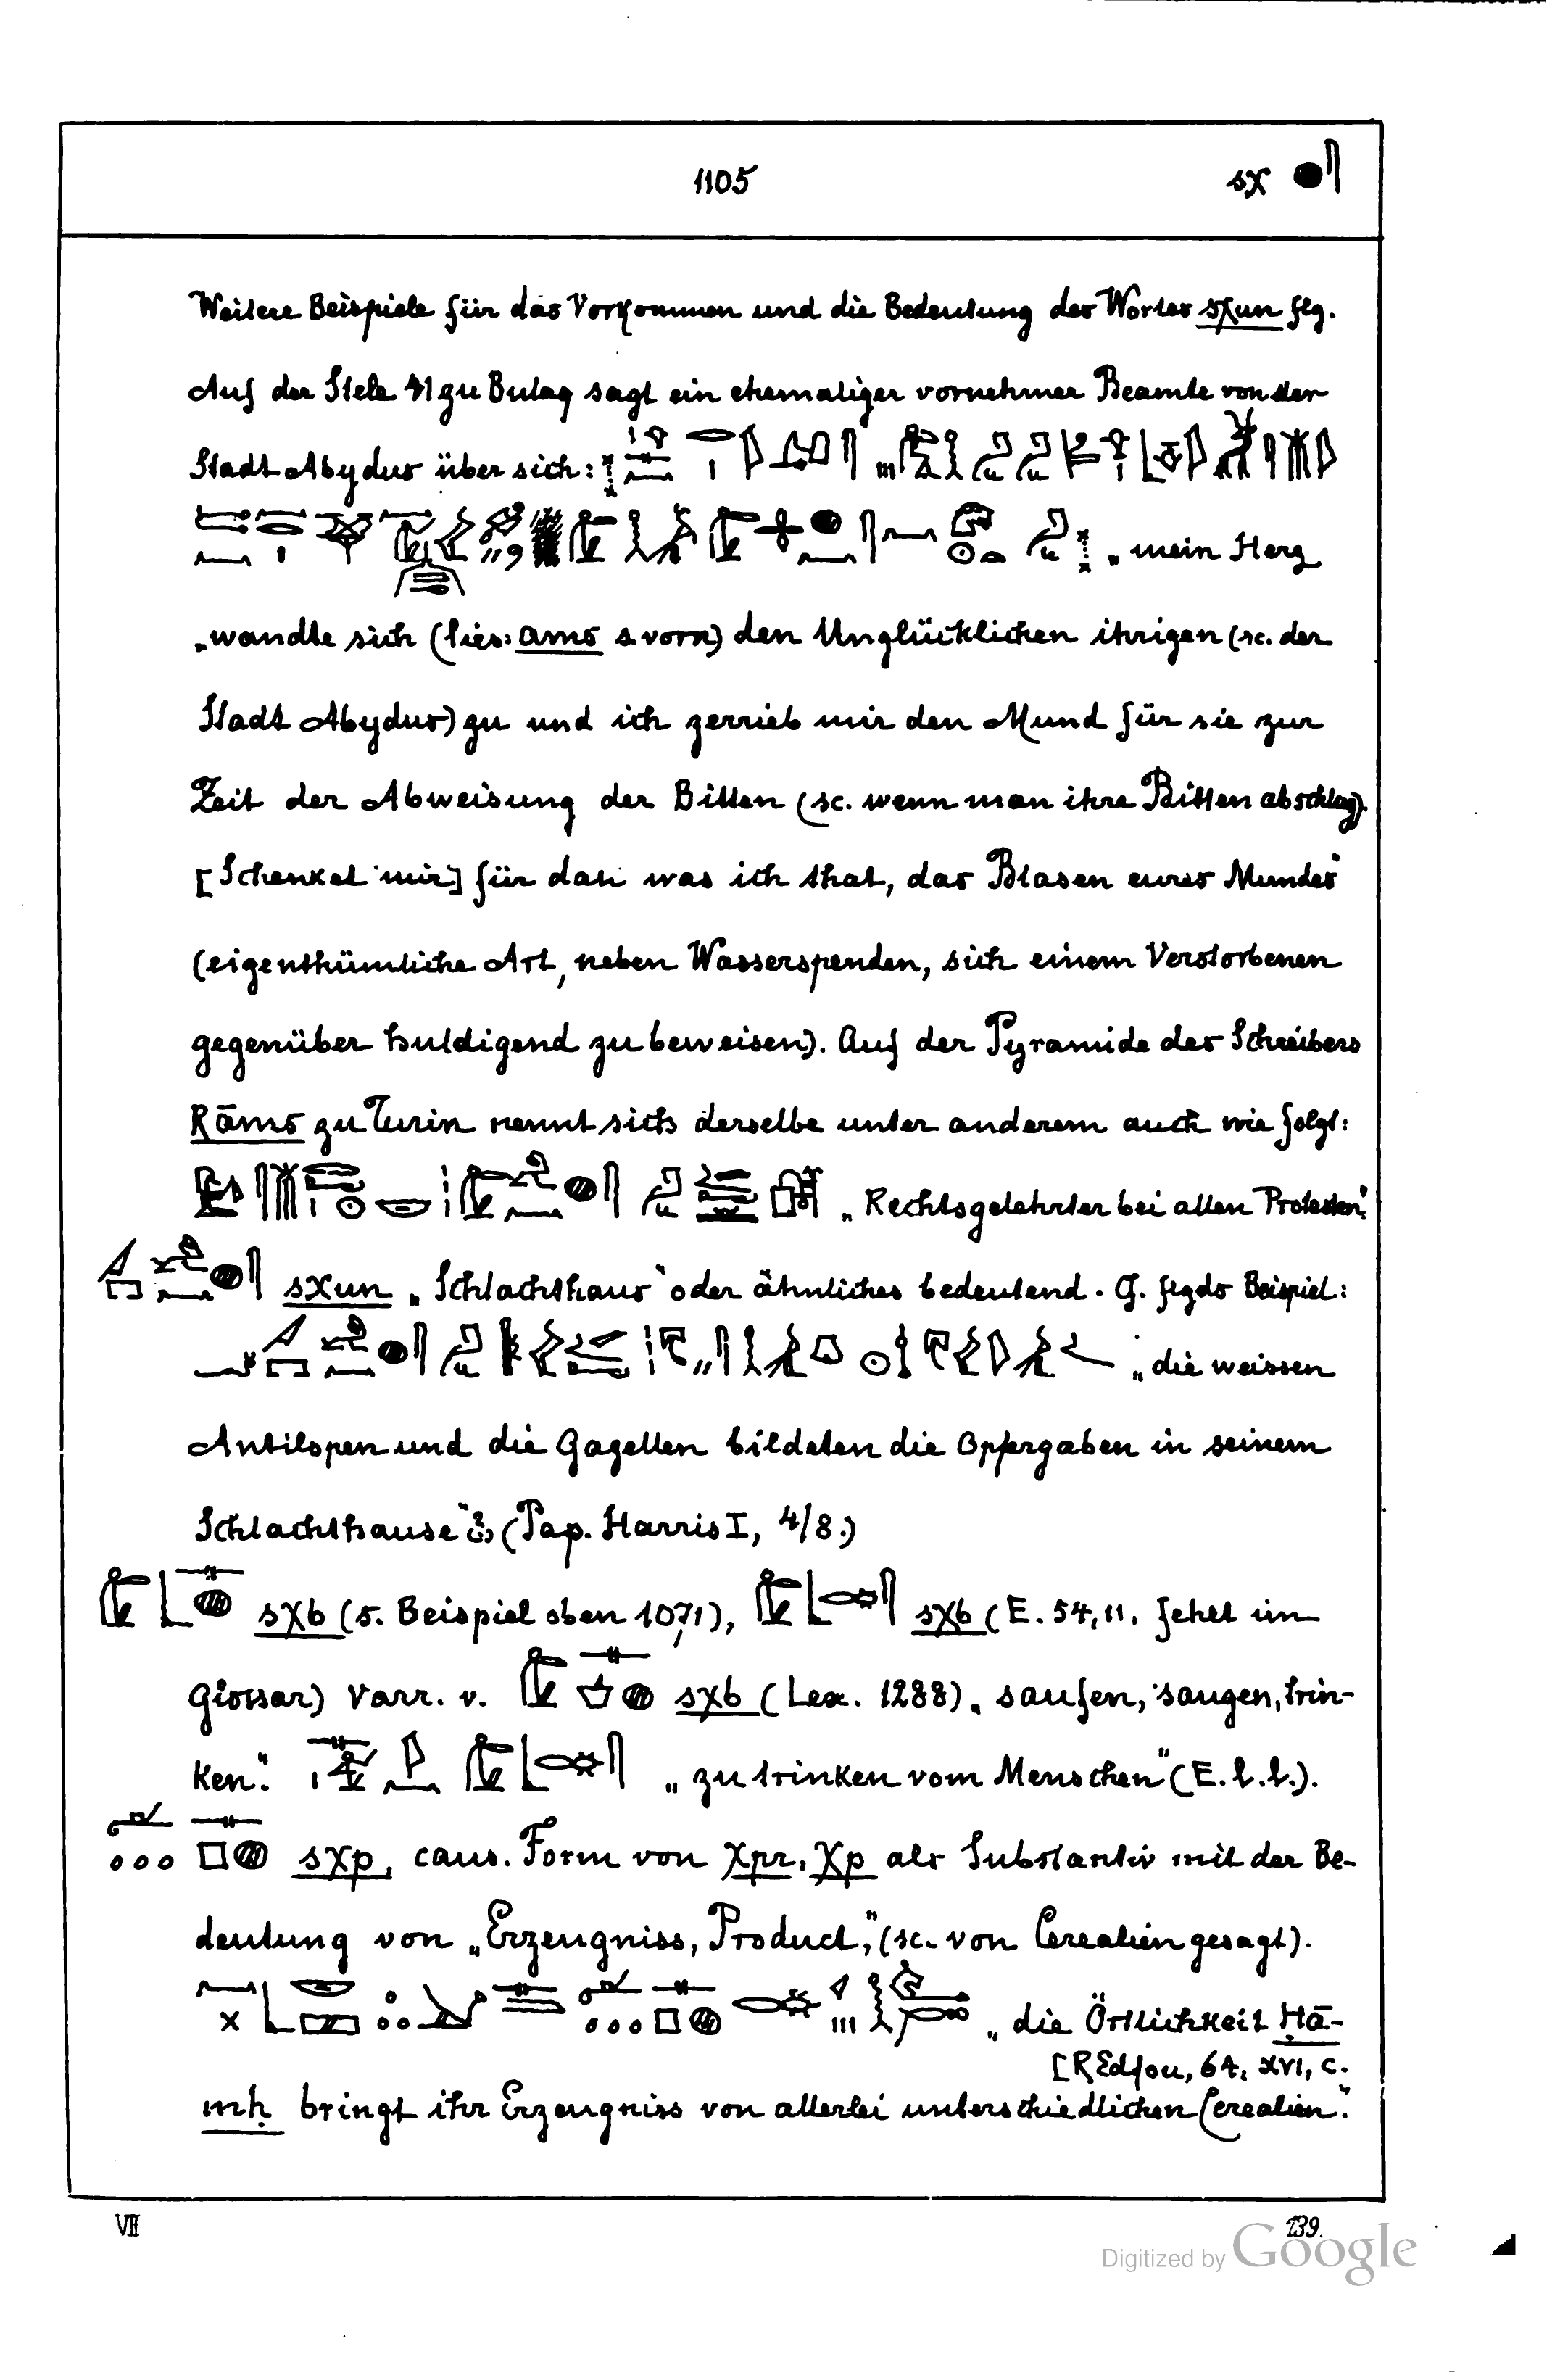 1105 sχ
Weitere Beispiele für das Vorkommen und die Bedeutung des Wortes sχun flg.
Auf der Stele 41 zu Bulaq sagt ein ehemaliger vornehmer Beamte von der
Stadt Abydus über sich:
„mein Herz
„wandte sich (lies: ams s. vorn) den Unglücklichen ihrigen (sc. der
Stadt Abydus) zu und ich zerrieb mir den Mund für sie zur
Zeit der Abweisung der Bitten (sc. wenn man ihre Bitten abschlag).
[Schenket mir] für das was ich that, das Blasen eures Mundes"
(eigenthümliche Art, neben Wasserspenden, sich einem Verstorbenen
gegenüber huldigend zu beweisen). Auf der Pyramide des Schreibers
Rāms zu Turin nennt sich derselbe unter anderem auch wie folgt:
„Rechtsgelehrter bei allen Protesten."
sχun „Schlachthaus" oder ähnliches bedeutend. Cf. flgds Beispiel:
„die weissen
Antilopen und die Gazellen bildeten die Opfergaben in seinem
Schlachthause" (Pap. Harris I, 4/8.)
sχb (s. Beispiel oben 1071), sχb (E. 54,11. fehlt im
Glossar) Varr. v. sχb (Lex. 1288) „saufen, saugen, trin-
ken". „zu trinken vom Menschen" (E. l. l.).
sχp, caus. Form von χpr, χp als Substantiv mit der Be-
deutung von „Erzeugniss, Product", (sc. von Cerealien gesagt).
„die Örtlichkeit Ḥā-
[R Edfou, 64, XVI, c.
mḥ bringt ihr Erzeugniss von allerlei unterschiedlichen Cerealien".
VII 139.
Digitized by Google